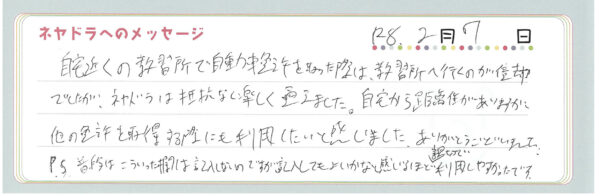 ネヤドラへのメッセージ
R8. 2月7日
自宅近くの教習所で自動車免許を取った際は、教習所へ行くのが億劫
でしたが、ネヤドラは抵抗なく楽しく通えました。自宅から距離がありますが
他の免許を取得する際にも利用したいと感じました。ありがとうございました。
P.S 普段はこういった欄は記入しないのですが記入してもよいかなと感じるほど親切で利用しやすかったです